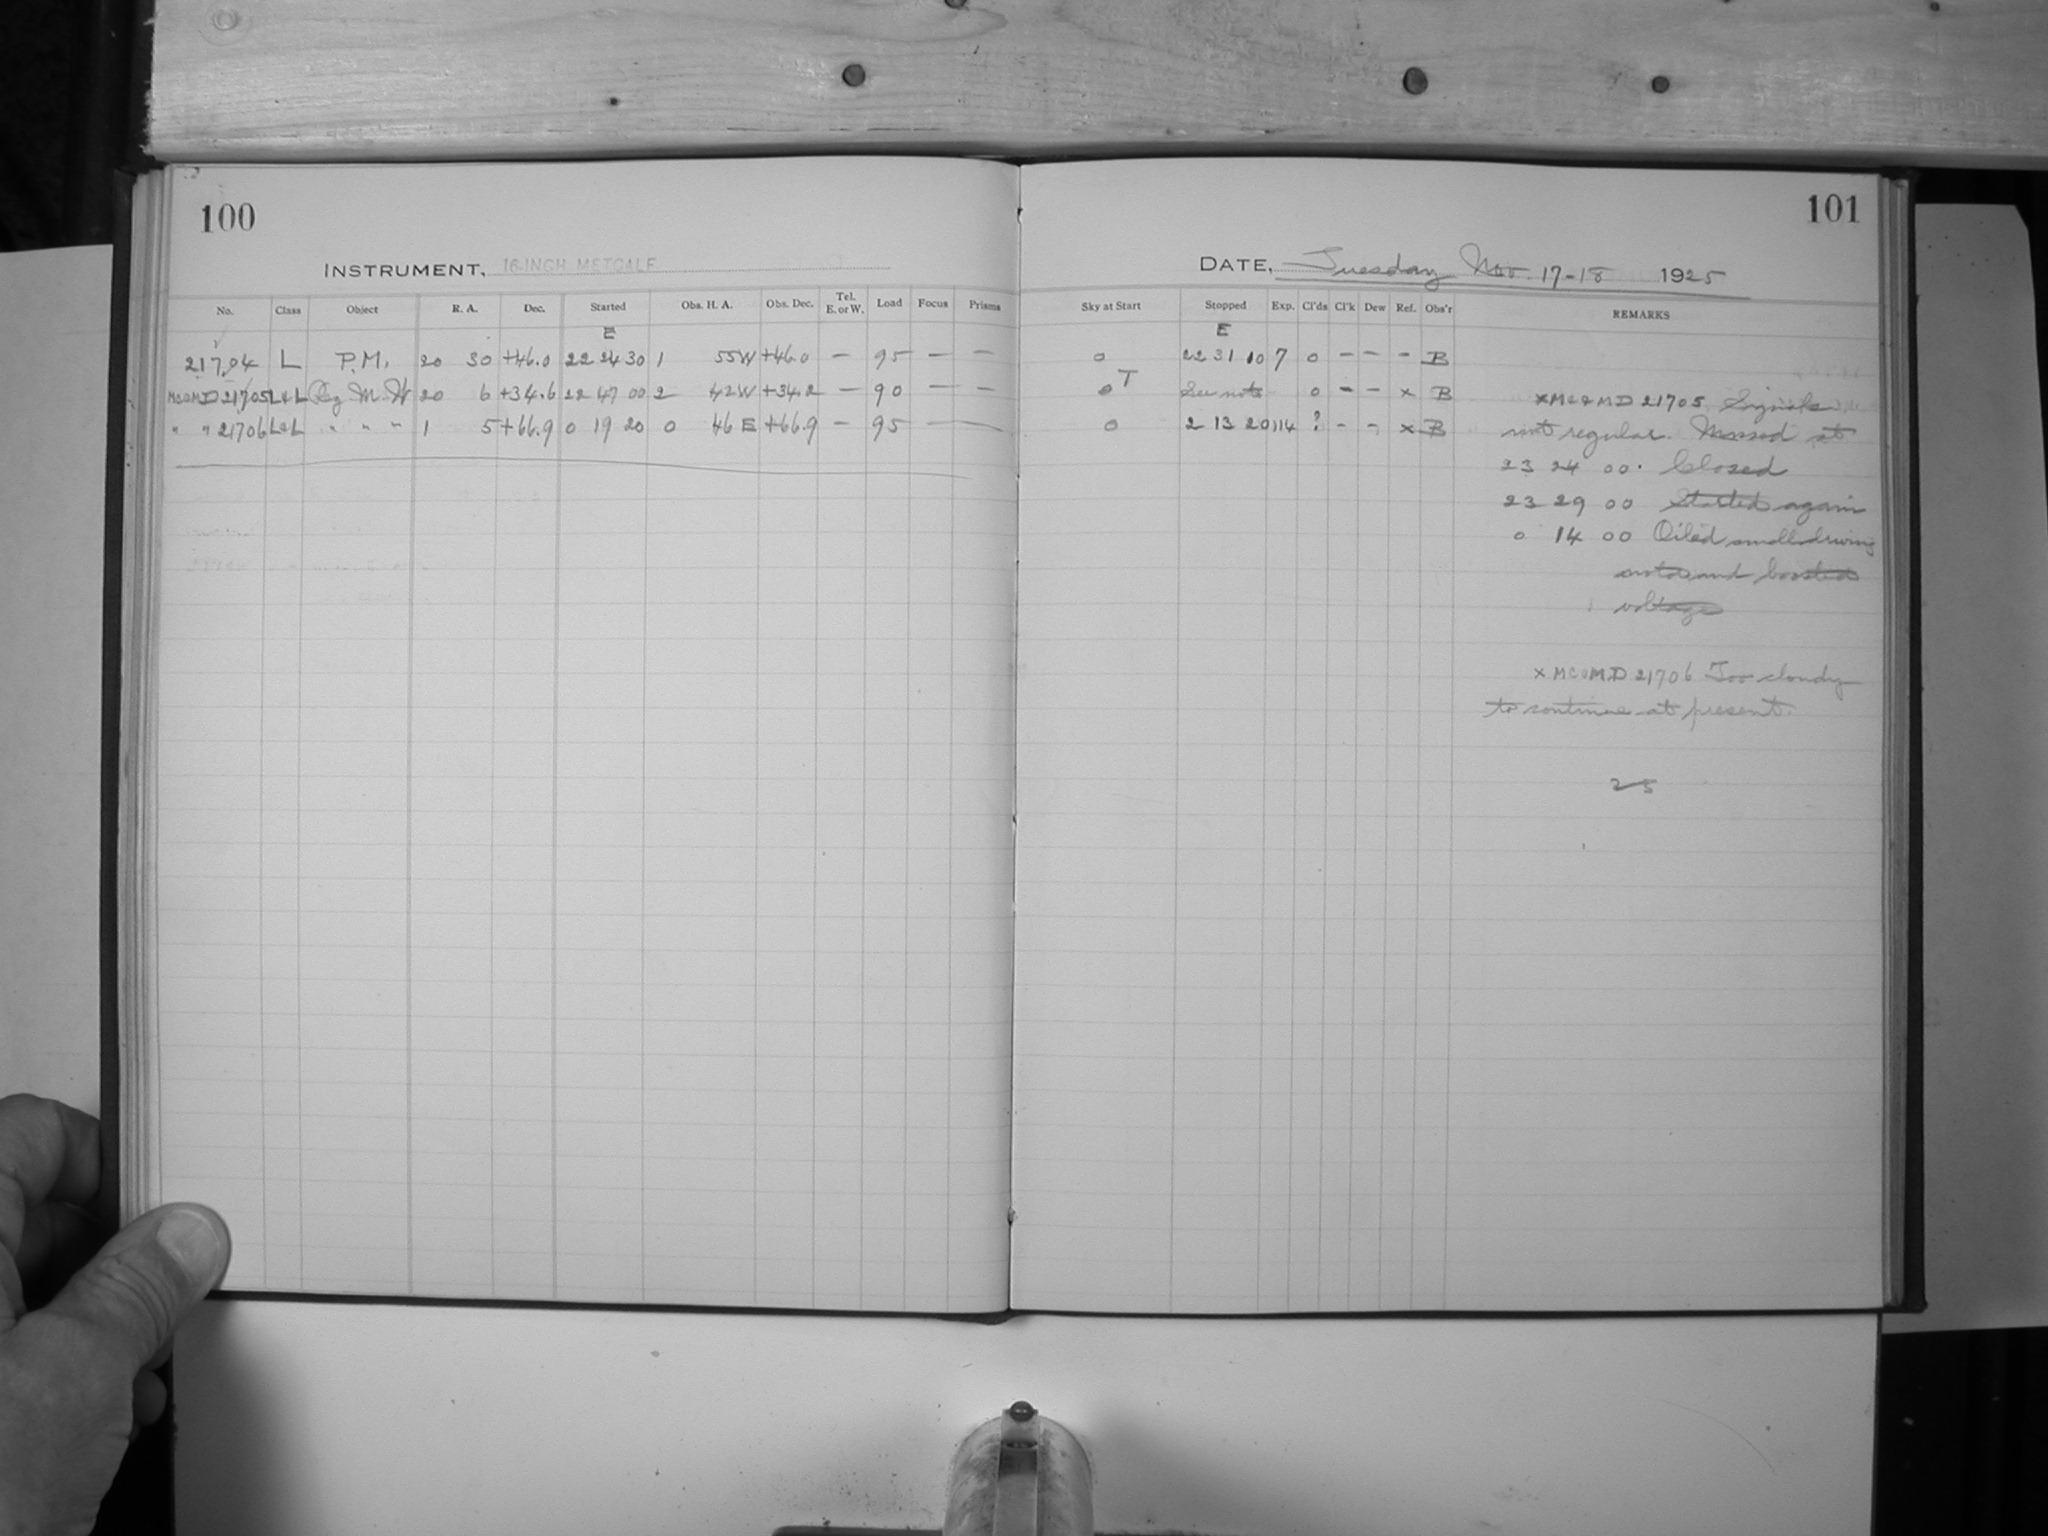 100
INSTRUMENT, 16-INCH METCALF
No. Class Object R. A. Dec. Started Obs. H. A. Obs. Dec. Tel. E. or W. Load Focus Prisms
E
21704 L P.M. 20 30 +46.0 22 24 30 1 55W +46.0 — 95 — —
MC&MD 21705 L&L Reg M.W 20 6 +34.6 22 47 00 2 42W +34.2 — 90 — —
" " 21706 L&L " " " 1 5 +66.9 0 19 20 0 46 E +66.9 — 95 — —
101
DATE, Tuesday Nov. 17-18 1925
Sky at Start Stopped Exp. Cl'ds Cl'k Dew Ref. Obs'r REMARKS
E
0 22 31 10 7 0 — — - B
0 T See note 0 - — x B
0 2 13 20 114 ? - - x B
x MC&MD 21705 Signals
not regular. Missed at
23 24 00. Closed
23 29 00 Started again
0 14 00 Oiled small driving
motor and boosted
voltage
x MC&MD 21706 Too cloudy
to continue at present.
25